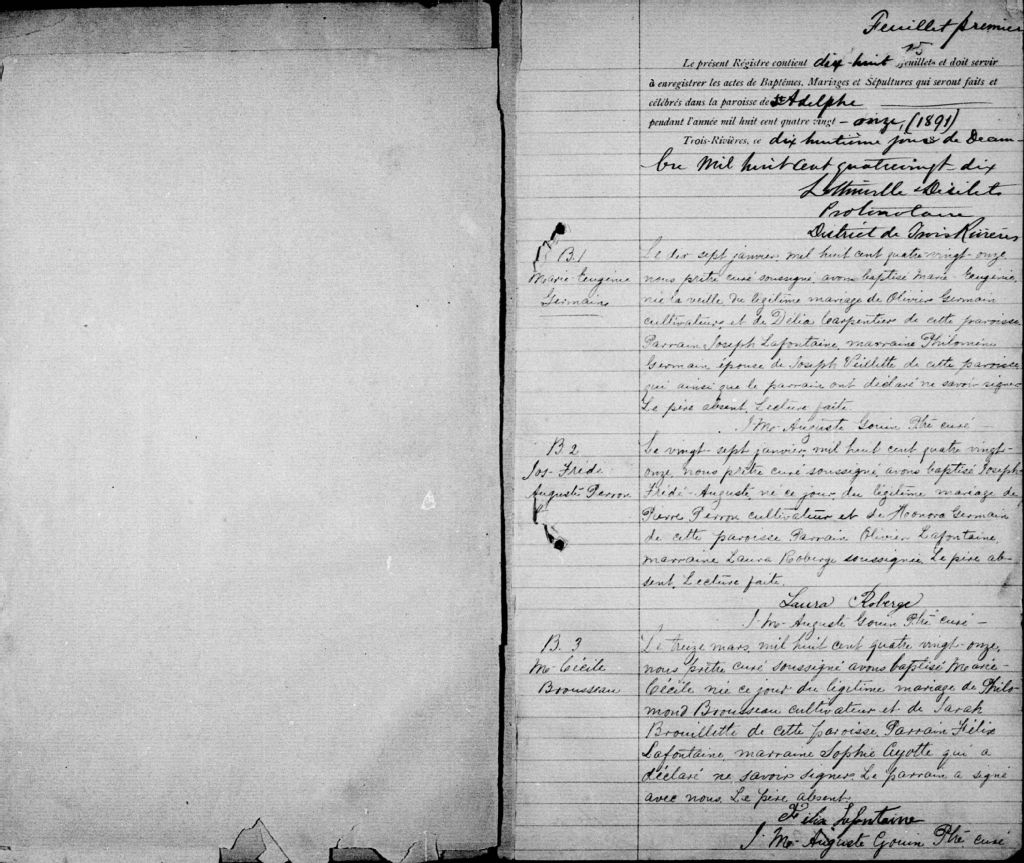 Feuillet premier
Le présent Régistre contient dix-huit feuillets et doit servir
à enregistrer les actes de Baptêmes, Mariages et Sépultures qui seront faits et
célébrés dans la paroisse de St Adelphe
pendant l'année mil huit cent quatre vingt - onze, (1891)
Trois-Rivières, ce dix huitième jour de Décem-
bre mil huit cent quatrevingt-dix
Désilets
Protonotaire
District de Trois Rivières
B. 1
Marie Eugénie
Germain
Le dix sept janvier, mil huit cent quatre vingt-onze
nous prêtre curé soussigné avons baptisé Marie-Eugénie,
née la veille du légitime mariage de Olivier Germain
cultivateur, et de Délia Carpentier de cette paroisse
Parrain Joseph Lafontaine, marraine Philomène
Germain épouse de Joseph Veillette de cette paroisse
qui ainsi que le parrain ont déclaré ne savoir signer
Le père absent. Lecture faite.
J. Mo Auguste Gouin Ptre curé
B 2
Jos-Frédé
Auguste Perron
Le vingt-sept janvier, mil huit cent quatre vingt-
onze, nous prêtre curé soussigné avons baptisé Joseph
Frédé-Auguste, né ce jour du légitime mariage de
Pierre Perron cultivateur et de Honora Germain
de cette paroisse Parrain Olivier Lafontaine,
marraine Laura Roberge soussignée. Le père ab-
sent. Lecture faite.
Laura Roberge
J. Mo Auguste Gouin Ptre curé -
B. 3
Me Cécile
Brousseau
Le treize mars, mil huit cent quatre vingt-onze,
nous prêtre curé soussigné avons baptisé Marie-
Cécile née ce jour du légitime mariage de Philo-
mond Brousseau cultivateur et de Sarah
Brouillette de cette paroisse. Parrain Félix
Lafontaine, marraine Sophie Ayotte qui a
déclaré ne savoir signer. Le parrain a signé
avec nous. Le père absent.
Félix Lafontaine
J. Mo Auguste Gouin Ptre curé